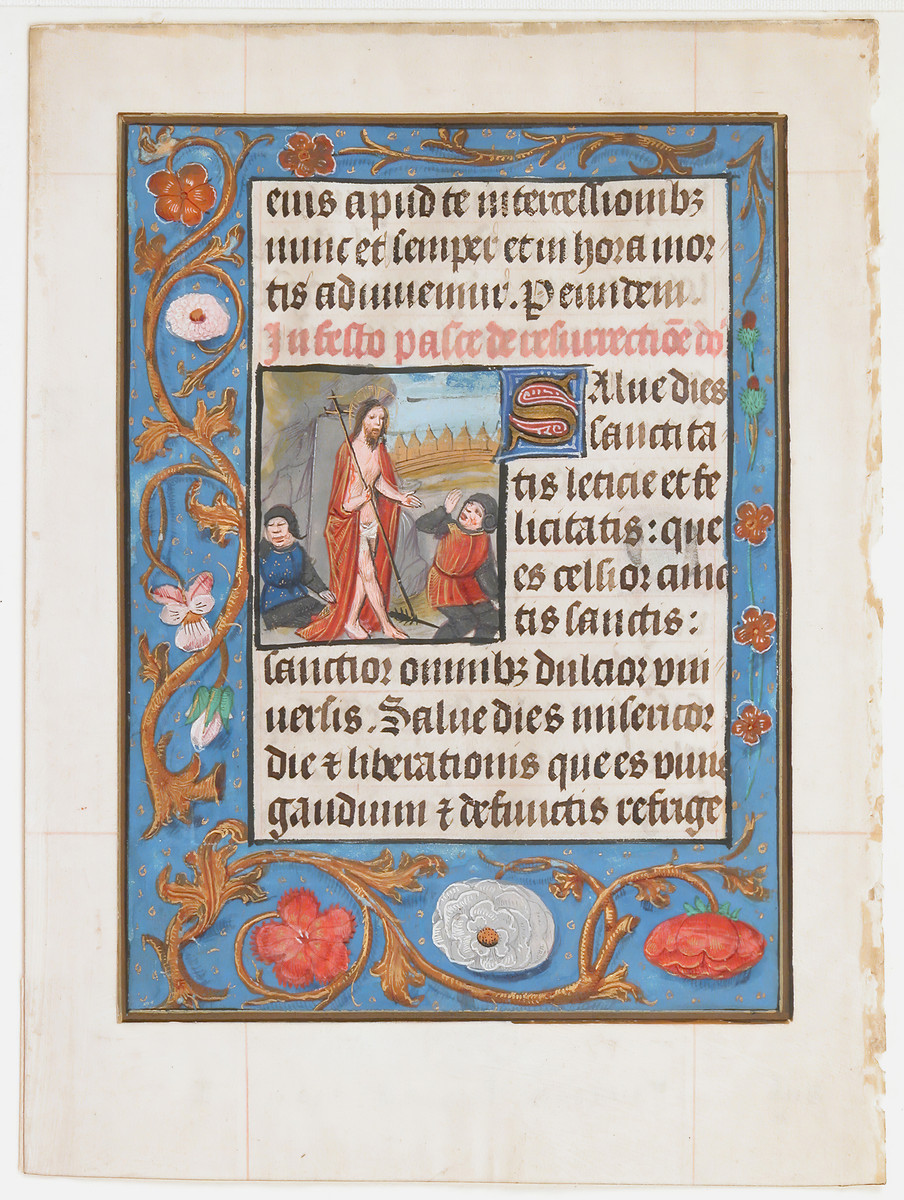 eius apud te intercessionibꝫ
nunc et semper et in hora mor
tis adiuuemur. P eundem.
In festo pasce de resurrectiōe do
SAlue dies
sanctita
tis leticie et fe
licitatis : que
es celsior cunc
tis sanctis :
sanctior omnibꝫ dulcior vni
uersis. Salue dies misericor
die ⁊ liberationis que es viuis
gaudium ⁊ defunctis refrige